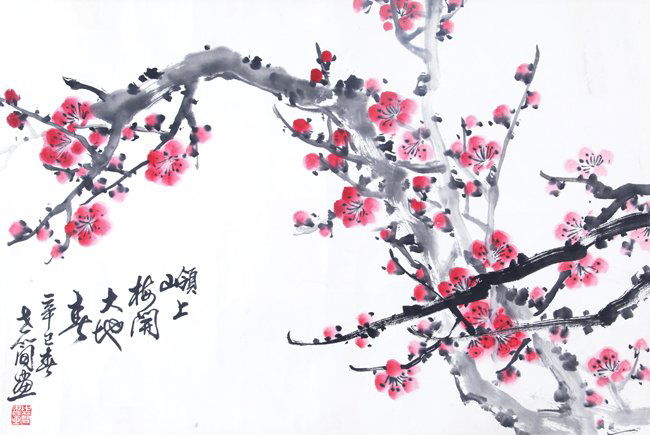 嶺上
梅開
大地
春
辛巳春
簡畫